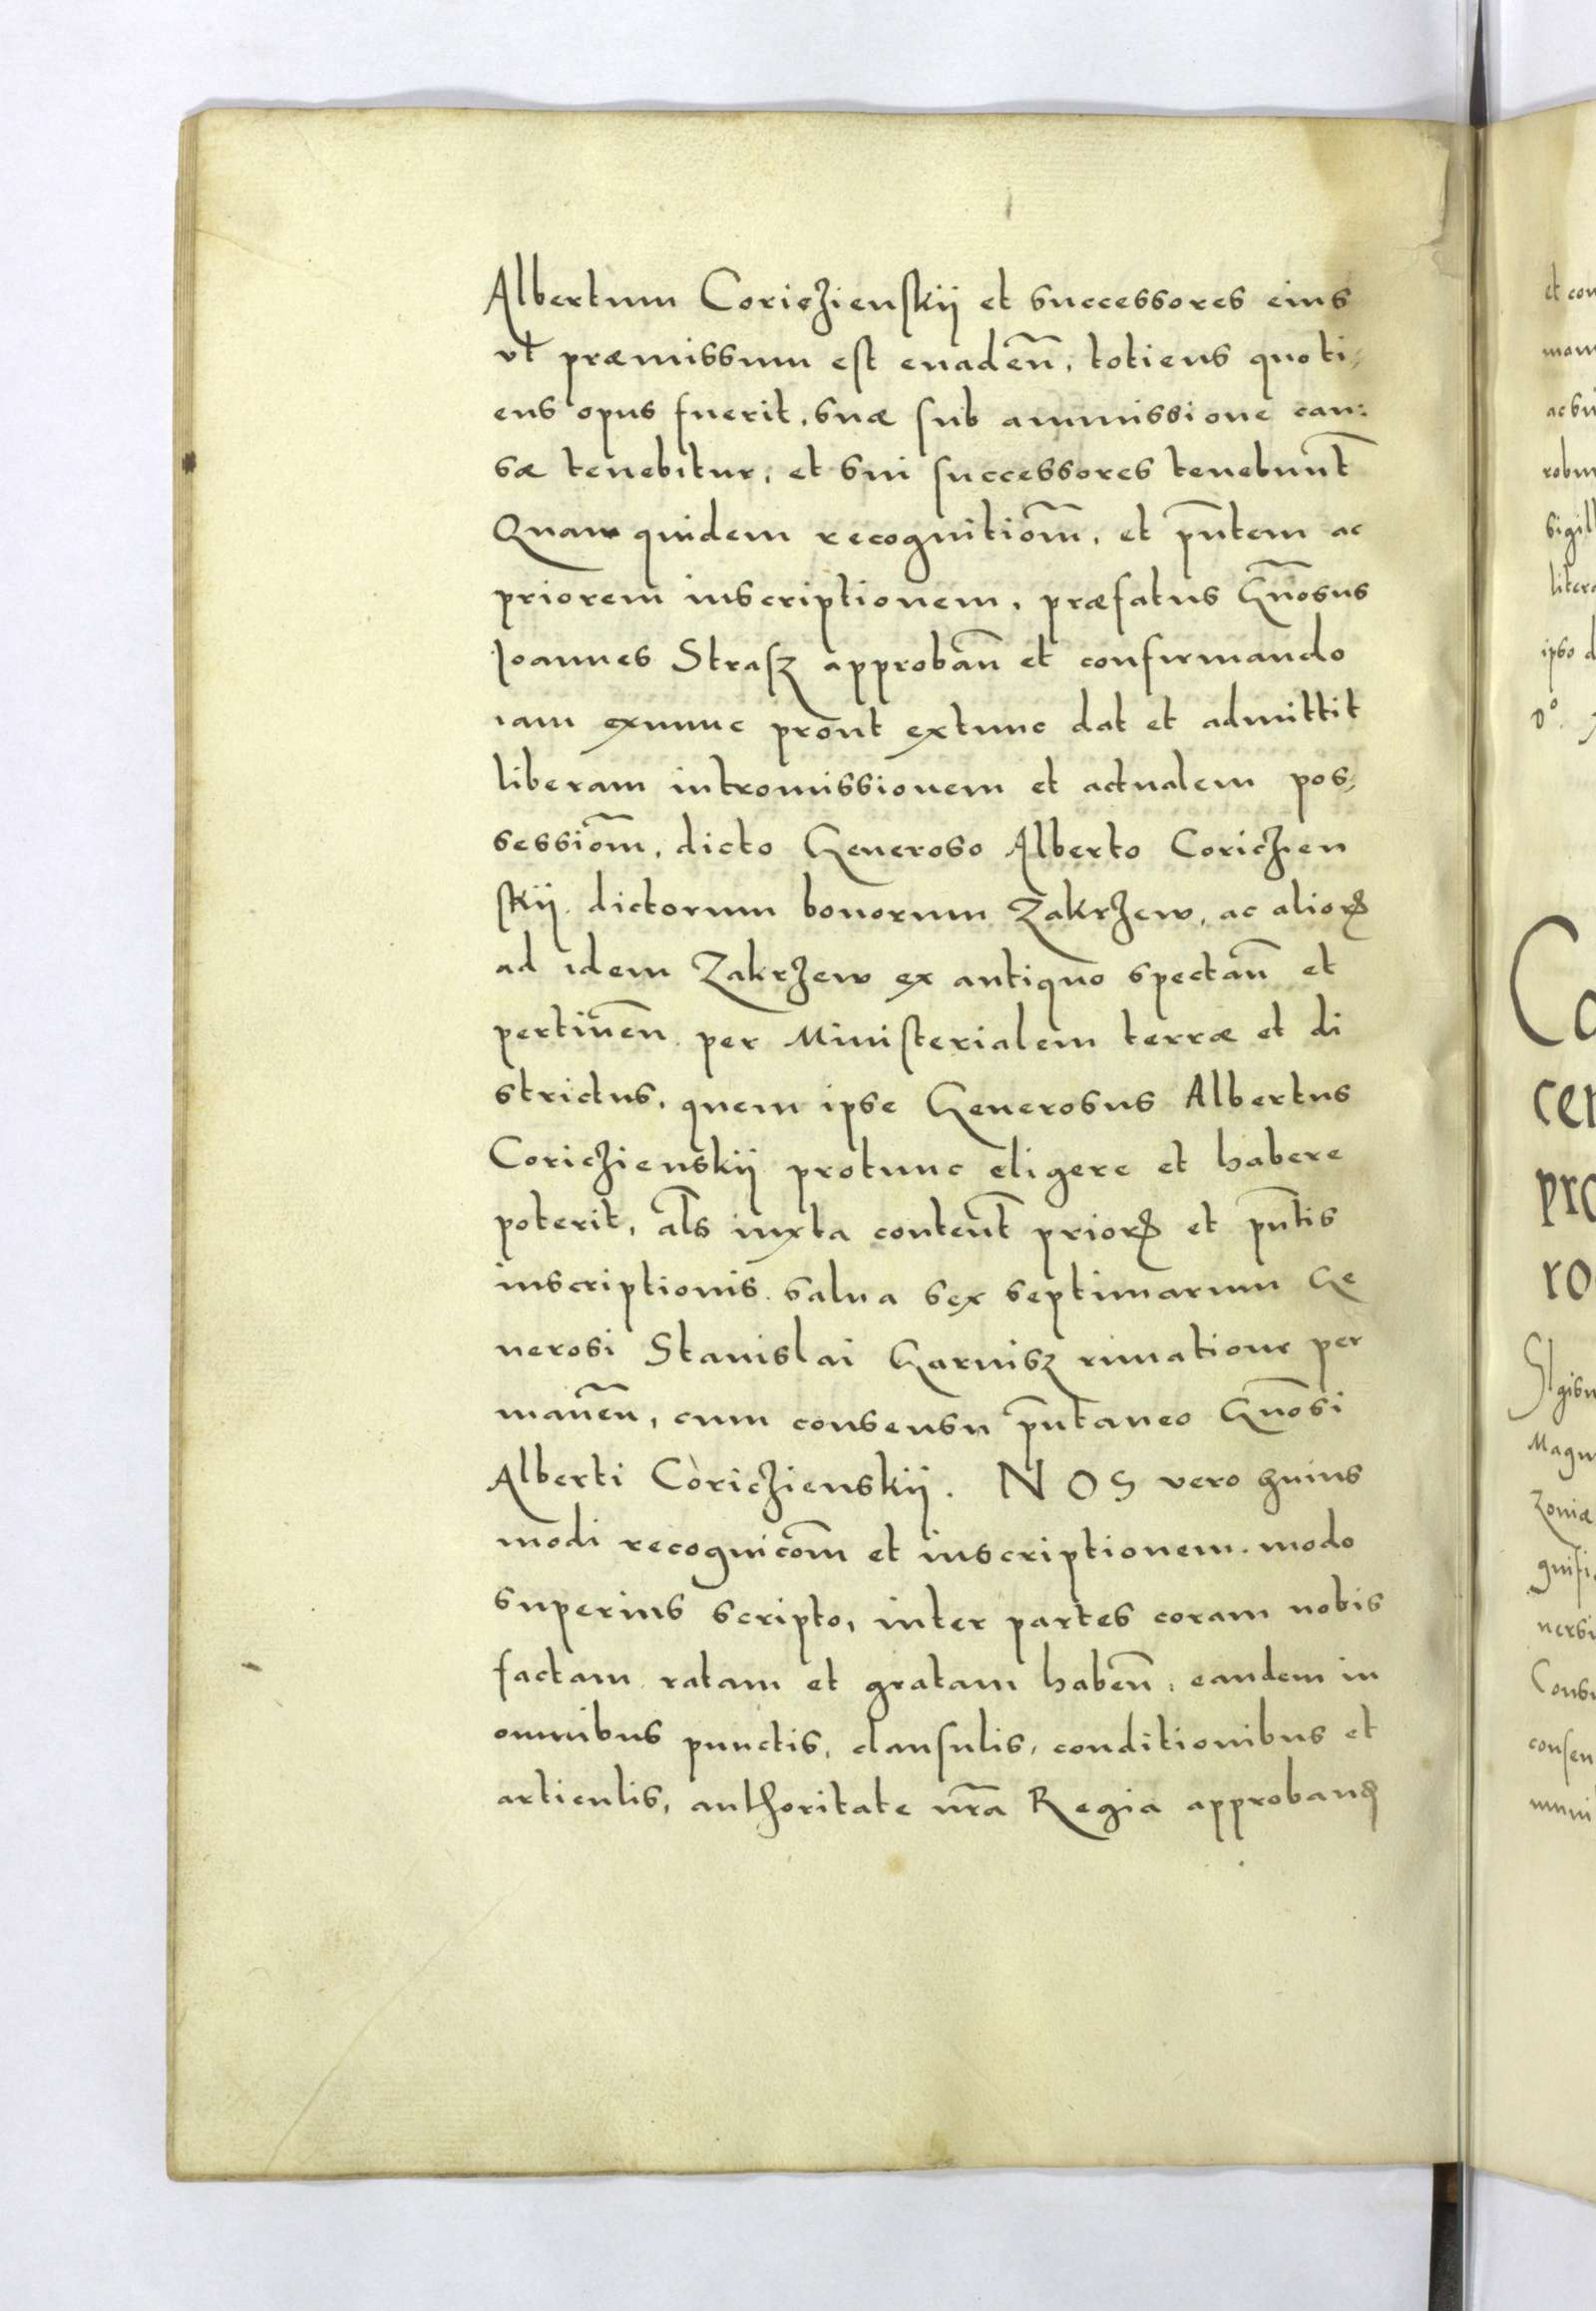 Albertum Coriczienskij et successores eius
vt præmissum est euadeñ, totiens quoti⸗
ens opus fuerit, suæ sub ammissione cau:
sæ tenebitur, et sui successores tenebunt̃
Quam quidem recognitiom̃, et pñtem ac
priorem inscriptionem, præfatus Gñosus
Joannes Strasz approbañ et confirmando
iam exnunc prout extunc dat et admittit
liberam intromissionem et actualem pos⸗
sessiom̃, dicto Generoso Alberto Coriczien
skij dictorum bonorum Zakrzew, ac alioꝝ
ad idem Zakrzew ex antiquo spectañ et
pertineñ per Ministerialem terræ et di
strictus, quem ipse Generosus Albertus
Coriczienskij protunc eligere et habere
poterit, al̃s iuxta content̃ prioꝝ et pñtis
inscriptionis salua sex septimarum Ge
nerosi Stanislai Garnisz rimatione per
maneñ, cum consensu pñtaneo Gñosi
Alberti Coriczienskij. NOS vero huius
modi recognicom̃ et inscriptionem modo
superius scripto, inter partes coram nobis
factam ratam et gratam habeñ, eandem in
omnibus punctis, clausulis, conditionibus et
articulis, authoritate nr̃a Regia approband
et con
mom
ac su
robur
sigil
litera
ipso d
Dº.
Co
cer
pro
ro
Sigis
Magn
zoniæ
gnifi
nersi
Cons
consen
muni